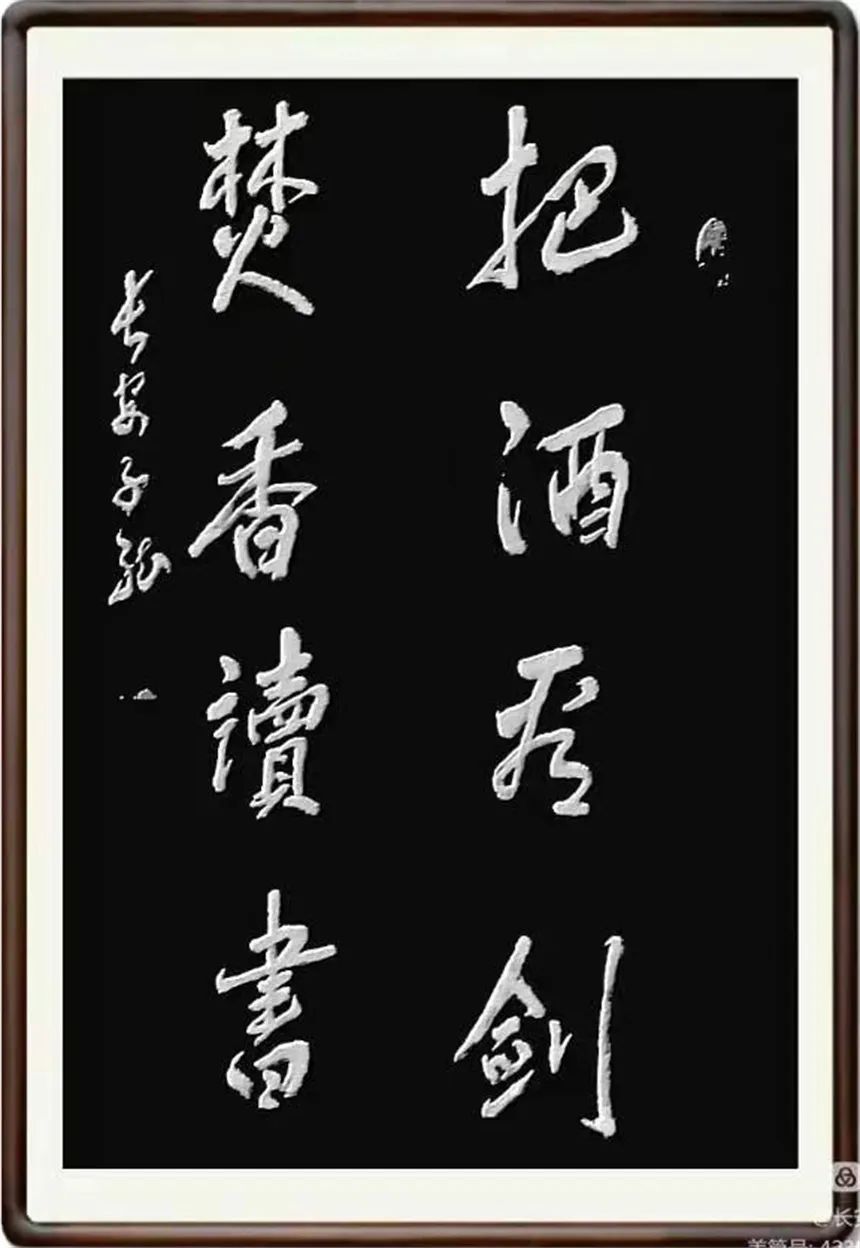 把酒看劍
焚香讀書
长安子龙
@长安
美篇号: 433